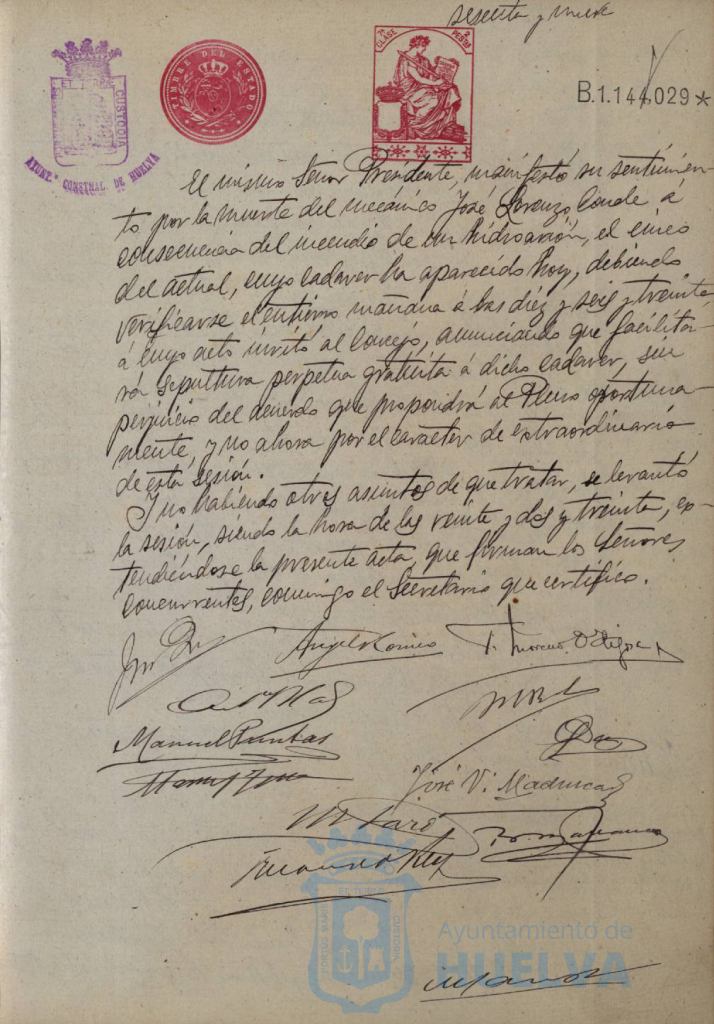 sesenta y nueve
EL TIMBRE
CUSTODIA
AYUNT.º CONSTNAL. DE HUELVA
TIMBRE DEL ESTADO
7ª CLASE
2 PESETAS
B.1.144,029*
El mismo Señor Presidente, manifestó su sentimien-
to por la muerte del mecánico José Lorenzo Conde á
consecuencia del incendio de un hidroavión, el cinco
del actual, cuyo cadaver ha aparecido hoy, debiendo
verificarse el entierro mañana á las diez y seis y treinta
á cuyo acto invitó al Concejo, anunciando que facilita-
rá sepultura perpetua gratuita á dicho cadaver, sin
perjuicio del acuerdo que propondrá al Pleno oportuna-
mente, y no ahora por el carácter de extraordinaria
de esta sesión.
Y no habiendo otros asuntos de que tratar, se levantó
la sesión, siendo la hora de las veinte y dos y treinta, ex-
tendiéndose la presente acta, que firman los Señores
concurrentes, conmigo el Secretario que certifico.
Angel
T. Moreno
Manuel Puntas
José V.
Ayuntamiento de
HUELVA
PORTUS MARIS
CUSTODIA